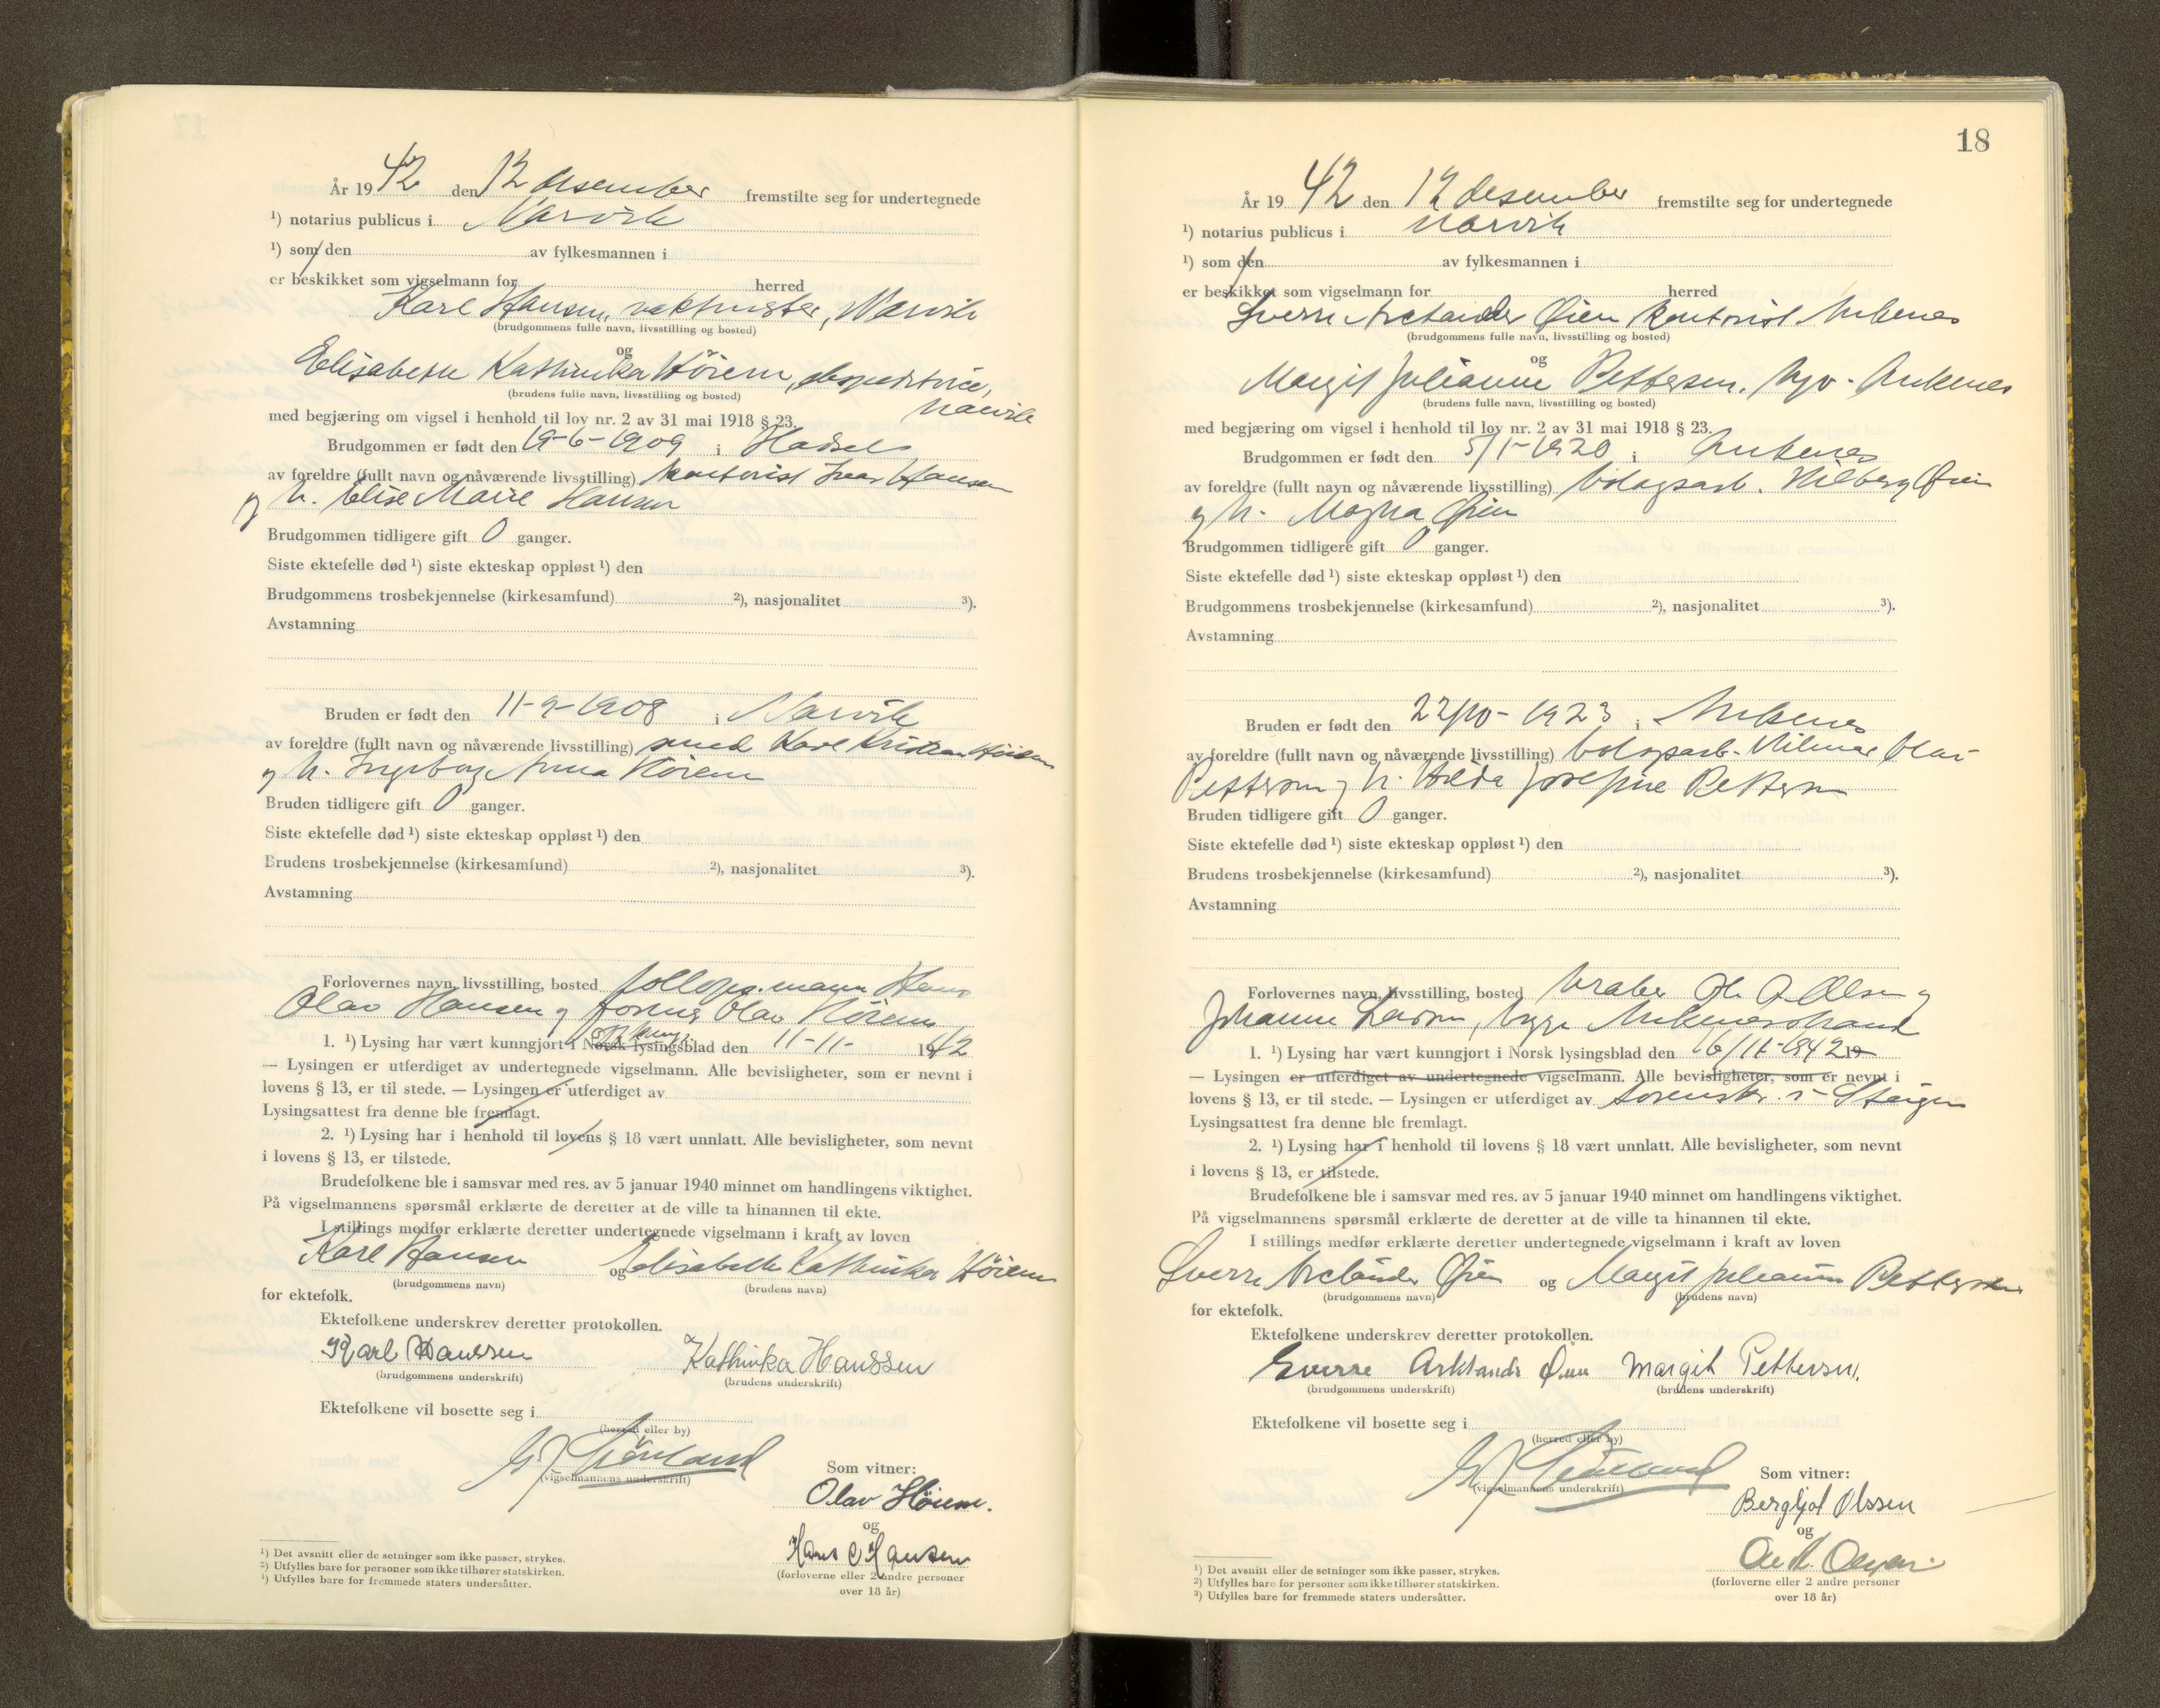 År 1942 den 12 desember fremstilte seg for undertegnede
¹) notarius publicus i Narvik
¹) som den av fylkesmannen i
er beskikket som vigselmann for herred
Karl Hansen, vaktmester, Narvik
(brudgommens fulle navn, livsstilling og bosted)
og
Elisabeth Kathinka Höiem, ekspeditrice,
(brudens fulle navn, livsstilling og bosted)
Narvik
med begjæring om vigsel i henhold til lov nr. 2 av 31 mai 1918 § 23.
Brudgommen er født den 19-6-1909 i Hadsel
av foreldre (fullt navn og nåværende livsstilling) kontorist Hansen
og h. Elise Marie Hansen
Brudgommen tidligere gift 0 ganger.
Siste ektefelle død ¹) siste ekteskap oppløst ¹) den
Brudgommens trosbekjennelse (kirkesamfund) ²), nasjonalitet ³).
Avstamning
Bruden er født den 11-9-1908 i Narvik
av foreldre (fullt navn og nåværende livsstilling) smed Karl Kristian Höiem
og h. Ingeborg Anna Höiem
Bruden tidligere gift 0 ganger.
Siste ektefelle død ¹) siste ekteskap oppløst ¹) den
Brudens trosbekjennelse (kirkesamfund) ²), nasjonalitet ³).
Avstamning
Forlovernes navn, livsstilling, bosted Hans
Olav Hansen og Olav Höiem
1. ¹) Lysing har vært kunngjort i Norsk lysingsblad den 11-11- 1942
— Lysingen er utferdiget av undertegnede vigselmann. Alle bevisligheter, som er nevnt i
lovens § 13, er til stede. — Lysingen er utferdiget av
Lysingsattest fra denne ble fremlagt.
2. ¹) Lysing har i henhold til lovens § 18 vært unnlatt. Alle bevisligheter, som nevnt
i lovens § 13, er tilstede.
Brudefolkene ble i samsvar med res. av 5 januar 1940 minnet om handlingens viktighet.
På vigselmannens spørsmål erklærte de deretter at de ville ta hinannen til ekte.
I stillings medfør erklærte deretter undertegnede vigselmann i kraft av loven
Karl Hansen og Elisabeth Kathinka Höiem
(brudgommens navn) (brudens navn)
for ektefolk.
Ektefolkene underskrev deretter protokollen.
Karl Hanssen Kathinka Hanssen
(brudgommens underskrift) (brudens underskrift)
Ektefolkene vil bosette seg i
(herred eller by)
(vigselmannens underskrift)
Som vitner:
Olav Höiem.
og
Hans O Hansen
(forloverne eller 2 andre personer
over 18 år)
¹) Det avsnitt eller de setninger som ikke passer, strykes.
²) Utfylles bare for personer som ikke tilhører statskirken.
³) Utfylles bare for fremmede staters undersåtter.
18
År 1942 den 12 desember fremstilte seg for undertegnede
¹) notarius publicus i Narvik
¹) som den av fylkesmannen i
er beskikket som vigselmann for herred
Sverre Øien kontorist Ankenes
(brudgommens fulle navn, livsstilling og bosted)
og
Margit Julianne Pettersen, Ankenes
(brudens fulle navn, livsstilling og bosted)
med begjæring om vigsel i henhold til lov nr. 2 av 31 mai 1918 § 23.
Brudgommen er født den 5/1-1920 i Ankenes
av foreldre (fullt navn og nåværende livsstilling) bolagsarb. Hilberg Øien
og h. Magna Øien
Brudgommen tidligere gift 0 ganger.
Siste ektefelle død ¹) siste ekteskap oppløst ¹) den
Brudgommens trosbekjennelse (kirkesamfund) ²), nasjonalitet ³).
Avstamning
Bruden er født den 22/10-1923 i Ankenes
av foreldre (fullt navn og nåværende livsstilling) bolagsarb. Hilmar Olai
Pettersen og h. Hilda Josefine Pettersen
Bruden tidligere gift 0 ganger.
Siste ektefelle død ¹) siste ekteskap oppløst ¹) den
Brudens trosbekjennelse (kirkesamfund) ²), nasjonalitet ³).
Avstamning
Forlovernes navn, livsstilling, bosted Olsen og
Johanne Larsen, Ankenesstrand
1. ¹) Lysing har vært kunngjort i Norsk lysingsblad den 16/11-1942 19
— Lysingen er utferdiget av undertegnede vigselmann. Alle bevisligheter, som er nevnt i
lovens § 13, er til stede. — Lysingen er utferdiget av sorenskr. i Steigen
Lysingsattest fra denne ble fremlagt.
2. ¹) Lysing har i henhold til lovens § 18 vært unnlatt. Alle bevisligheter, som nevnt
i lovens § 13, er tilstede.
Brudefolkene ble i samsvar med res. av 5 januar 1940 minnet om handlingens viktighet.
På vigselmannens spørsmål erklærte de deretter at de ville ta hinannen til ekte.
I stillings medfør erklærte deretter undertegnede vigselmann i kraft av loven
Sverre Øien og Margit Julianne Pettersen
(brudgommens navn) (brudens navn)
for ektefolk.
Ektefolkene underskrev deretter protokollen.
Sverre Øien Margit Pettersen.
(brudgommens underskrift) (brudens underskrift)
Ektefolkene vil bosette seg i
(herred eller by)
(vigselmannens underskrift)
Som vitner:
Bergljot Olssen
og
(forloverne eller 2 andre personer
over 18 år)
¹) Det avsnitt eller de setninger som ikke passer, strykes.
²) Utfylles bare for personer som ikke tilhører statskirken.
³) Utfylles bare for fremmede staters undersåtter.